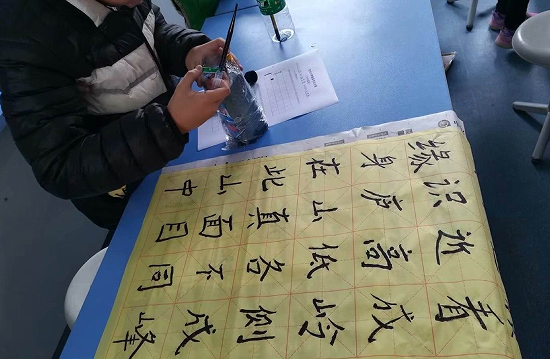 看成岭侧成峰
近高低各不同
识庐山真面目
缘身在此山中